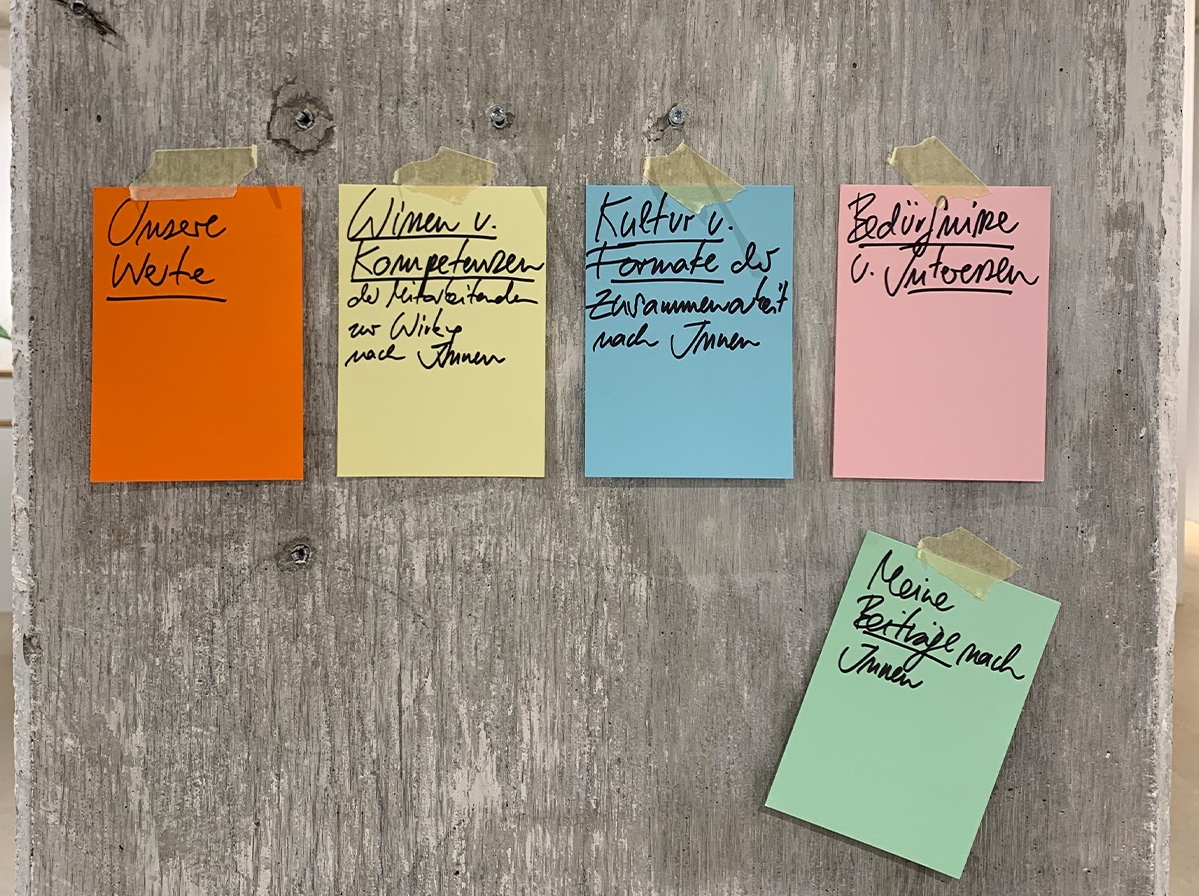 Unsere
Werte
Wissen u.
Kompetenzen
der Mitarbeitenden
zur Wirkg
nach Innen
Kultur u.
Formate der
Zusammenarbeit
nach Innen
Bedürfnisse
u. Interessen
Meine
Beiträge nach
Innen